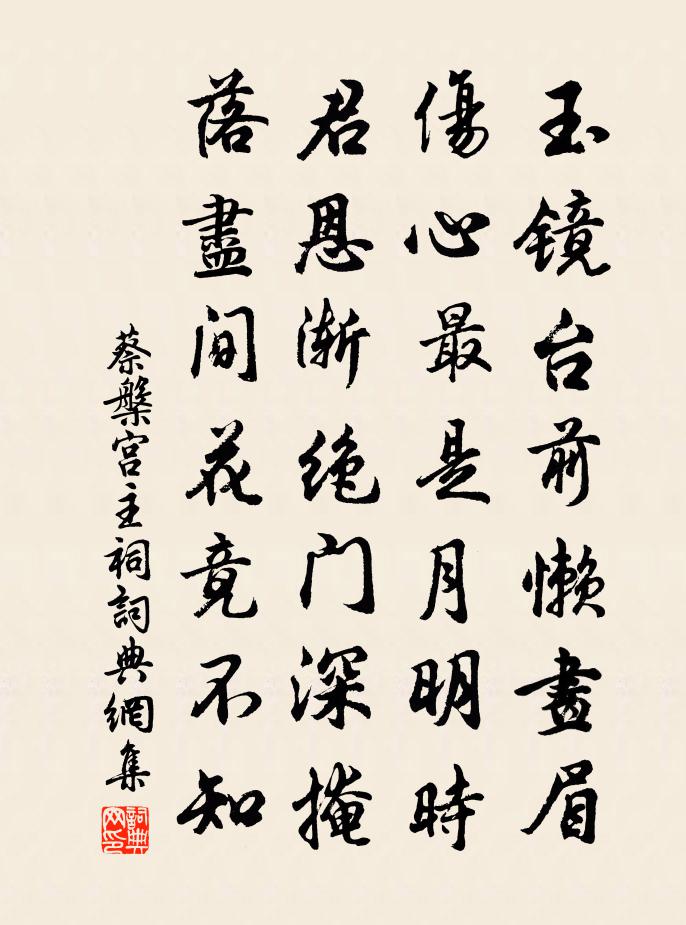 玉镜台前懒畫眉
傷心最是月明時
君恩渐绝门深掩
落盡间花竟不知
蔡槃宫主祠詞典網集
詞典网印